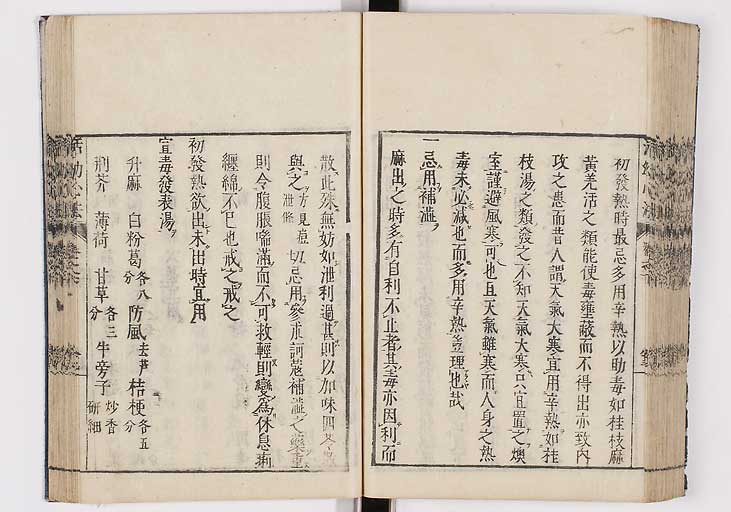 初發熱時最忌多用辛熱以助毒如桂枝麻
黃羌活之類能使毒壅蔽而不得出亦致內
攻之患而昔人謂天氣大寒宜用辛熱如桂
枝湯之類發之不知天氣大寒只宜置之燠
室謹避風寒可也且天氣雖寒而人身之熱
毒未必減也而多用辛熱豈理也哉
一忌用補澁
麻出之時多有自利不止者其毒亦因利而
散此殊無妨如泄利過甚則以加味四苓散
與之方見痘泄條切忌用參朮訶蔻補澁之藥重
則令腹脹喘滿而不可救輕則變爲休息痢
纏綿不已也戒之戒之
初發熱欲出未出時宜用
宣毒發表湯
升麻 白粉葛各八分 防風去芦 桔梗各五分
荆芥 薄荷 甘草各三分 牛旁子炒香研細
活幼心法